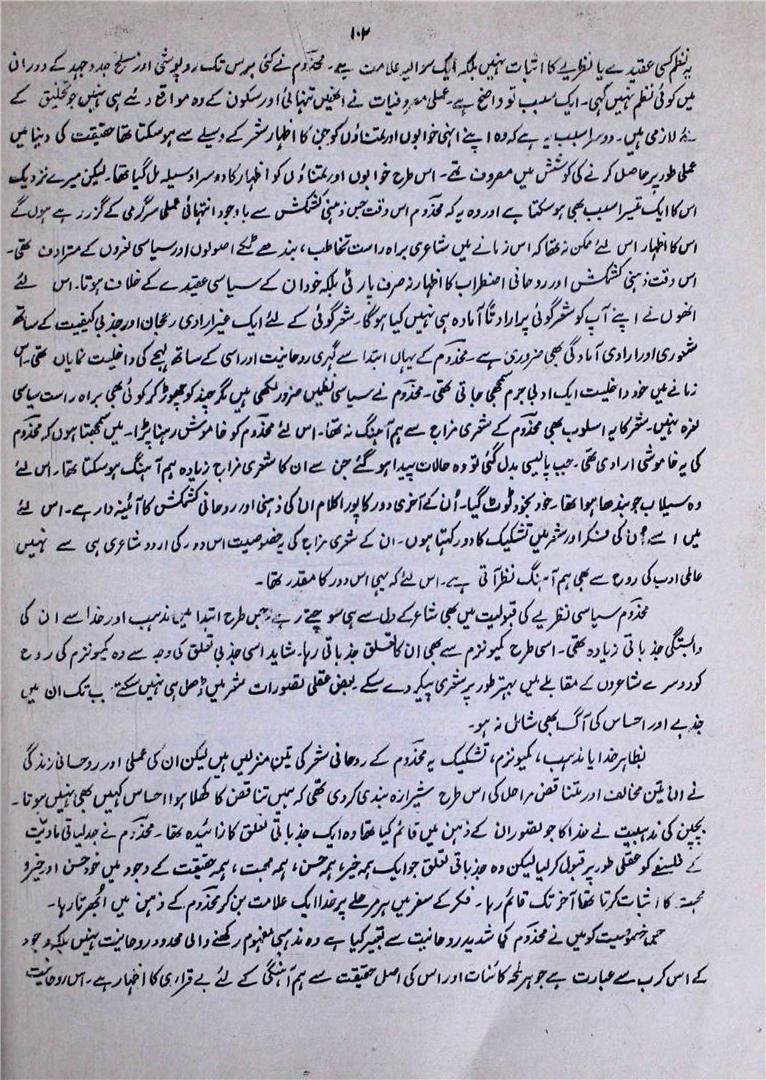 ۱۰۲
یہ نظم کسی عقیدے یا نظریے کا اثبات نہیں بلکہ ایک سوالیہ علامت ہے۔ مخدوم نے کئی برس تک روپوشی اور مسلح جدوجہد کے دوران
میں کوئی نظم نہیں کہی۔ ایک سبب تو واضح ہے۔ عملی مصروفیات نے انھیں تنہائی اور سکون کے وہ مواقع دئے ہی نہیں جو تخلیق کے
لئے لازمی ہیں۔ دوسرا سبب یہ ہے کہ وہ اپنے انہی خوابوں اور تمناؤں کو جن کا اظہار شعر کے وسیلے سے ہو سکتا تھا حقیقت کی دنیا میں
عملی طور پر حاصل کرنے کی کوشش میں مصروف تھے۔ اس طرح خوابوں اور تمناؤں کو اظہار کا دوسرا وسیلہ مل گیا تھا۔ لیکن میرے نزدیک
اس کا ایک تیسرا سبب بھی ہو سکتا ہے اور وہ یہ کہ مخدوم اس وقت جس ذہنی کشمکش سے باوجود انتہائی عملی سرگرمی کے گزر رہے ہوں گے
اس کا اظہار اس لئے ممکن نہ تھا کہ اس زمانے میں شاعری براہ راست تخاطب، بندھے ٹکے اصولوں اور سیاسی نعروں کے مترادف تھی۔
اس وقت ذہنی کشمکش اور روحانی اضطراب کا اظہار نہ صرف پارٹی بلکہ خود ان کے سیاسی عقیدے کے خلاف ہوتا۔ اس لئے
انھوں نے اپنے آپ کو شعر گوئی پر ارادتاً آمادہ ہی نہیں کیا ہوگا۔ شعر گوئی کے لئے ایک غیر ارادی رجحان اور جذبی کیفیت کے ساتھ
شعوری اور ارادی آمادگی بھی ضروری ہے۔ مخدوم کے یہاں ابتدا سے گہری روحانیت اور اسی کے ساتھ لہجے کی داخلیت نمایاں تھی۔ اس
زمانے میں خود داخلیت ایک ادبی جرم سمجھی جاتی تھی۔ مخدوم نے سیاسی نظمیں ضرور لکھی ہیں مگر چند کو چھوڑ کر کوئی بھی براہ راست سیاسی
نعرہ نہیں۔ شعر کا یہ اسلوب بھی مخدوم کے شعری مزاج سے ہم آہنگ نہ تھا۔ اس لئے مخدوم کو خاموش رہنا پڑا۔ میں سمجھتا ہوں کہ مخدوم
کی یہ خاموشی ارادی تھی۔ جب پالیسی بدل گئی تو وہ حالات پیدا ہو گئے جن سے ان کا شعری مزاج زیادہ ہم آہنگ ہو سکتا تھا۔ اس لئے
وہ سیلاب جو بندھا ہوا تھا۔ خود بخود ٹوٹ گیا۔ اُن کے آخری دور کا پورا کلام ان کی ذہنی اور روحانی کشمکش کا آئینہ دار ہے۔ اس لئے
میں اسے اُن کی فکر اور شعر میں تشکیک کا دور کہتا ہوں۔ ان کے شعری مزاج کی یہ خصوصیت اس دور کی اردو شاعری ہی سے نہیں
عالمی ادب کی روح سے بھی ہم آہنگ نظر آتی ہے۔ اس لئے کہ یہی اس دور کا مقدر تھا۔
مخدوم سیاسی نظریے کی قبولیت میں بھی شاعر کے دل سے ہی سوچتے رہے۔ جس طرح ابتدا میں مذہب اور خدا سے ان کی
وابستگی جذباتی زیادہ تھی۔ اسی طرح کمیونزم سے بھی ان کا تعلق جذباتی رہا۔ شاید اسی جذبی تعلق کی وجہ سے وہ کمیونزم کی روح
کو دوسرے شاعروں کے مقابلے میں بہتر طور پر شعری پیکر دے سکے۔ بعض عقلی تصورات شعر میں ڈھل ہی نہیں سکتے جب تک ان میں
جذبے اور احساس کی آگ بھی شامل نہ ہو۔
بظاہر خدا یا مذہب، کمیونزم، تشکیک یہ مخدوم کے روحانی شعر کی تین منزلیں ہیں لیکن ان کی عملی اور روحانی زندگی
نے ان تین مخالف اور متناقض مراحل کی اس طرح شیرازہ بندی کر دی تھی کہ ہمیں تناقض کا کھلا ہوا احساس کہیں بھی نہیں ہوتا۔
بچپن کی مذہبیت نے خدا کا جو تصور ان کے ذہن میں قائم کیا تھا وہ ایک جذباتی تعلق کا زائیدہ تھا۔ مخدوم نے جدلیاتی مادیت
کے فلسفے کو عقلی طور پر قبول کر لیا لیکن وہ جذباتی تعلق جو ایک ہمہ خیر، ہمہ حسن، ہمہ محبت، ہمہ حقیقت کے وجود میں خود حسن اور خیر و
محبت کا اثبات کرتا تھا آخر تک قائم رہا۔ فکر کے سفر میں ہر مرحلے پر خدا ایک علامت بن کر مخدوم کے ذہن میں اُبھرتا رہا۔
جس خصوصیت کو میں نے مخدوم کی شدید روحانیت سے تعبیر کیا ہے وہ مذہبی مفہوم رکھنے والی محدود روحانیت نہیں بلکہ وجود
کے اس کرب سے عبارت ہے جو ہر لمحہ کائنات اور اس کی اصل حقیقت سے ہم آہنگی کے لئے بے قراری کا اظہار ہے۔ اس روحانیت